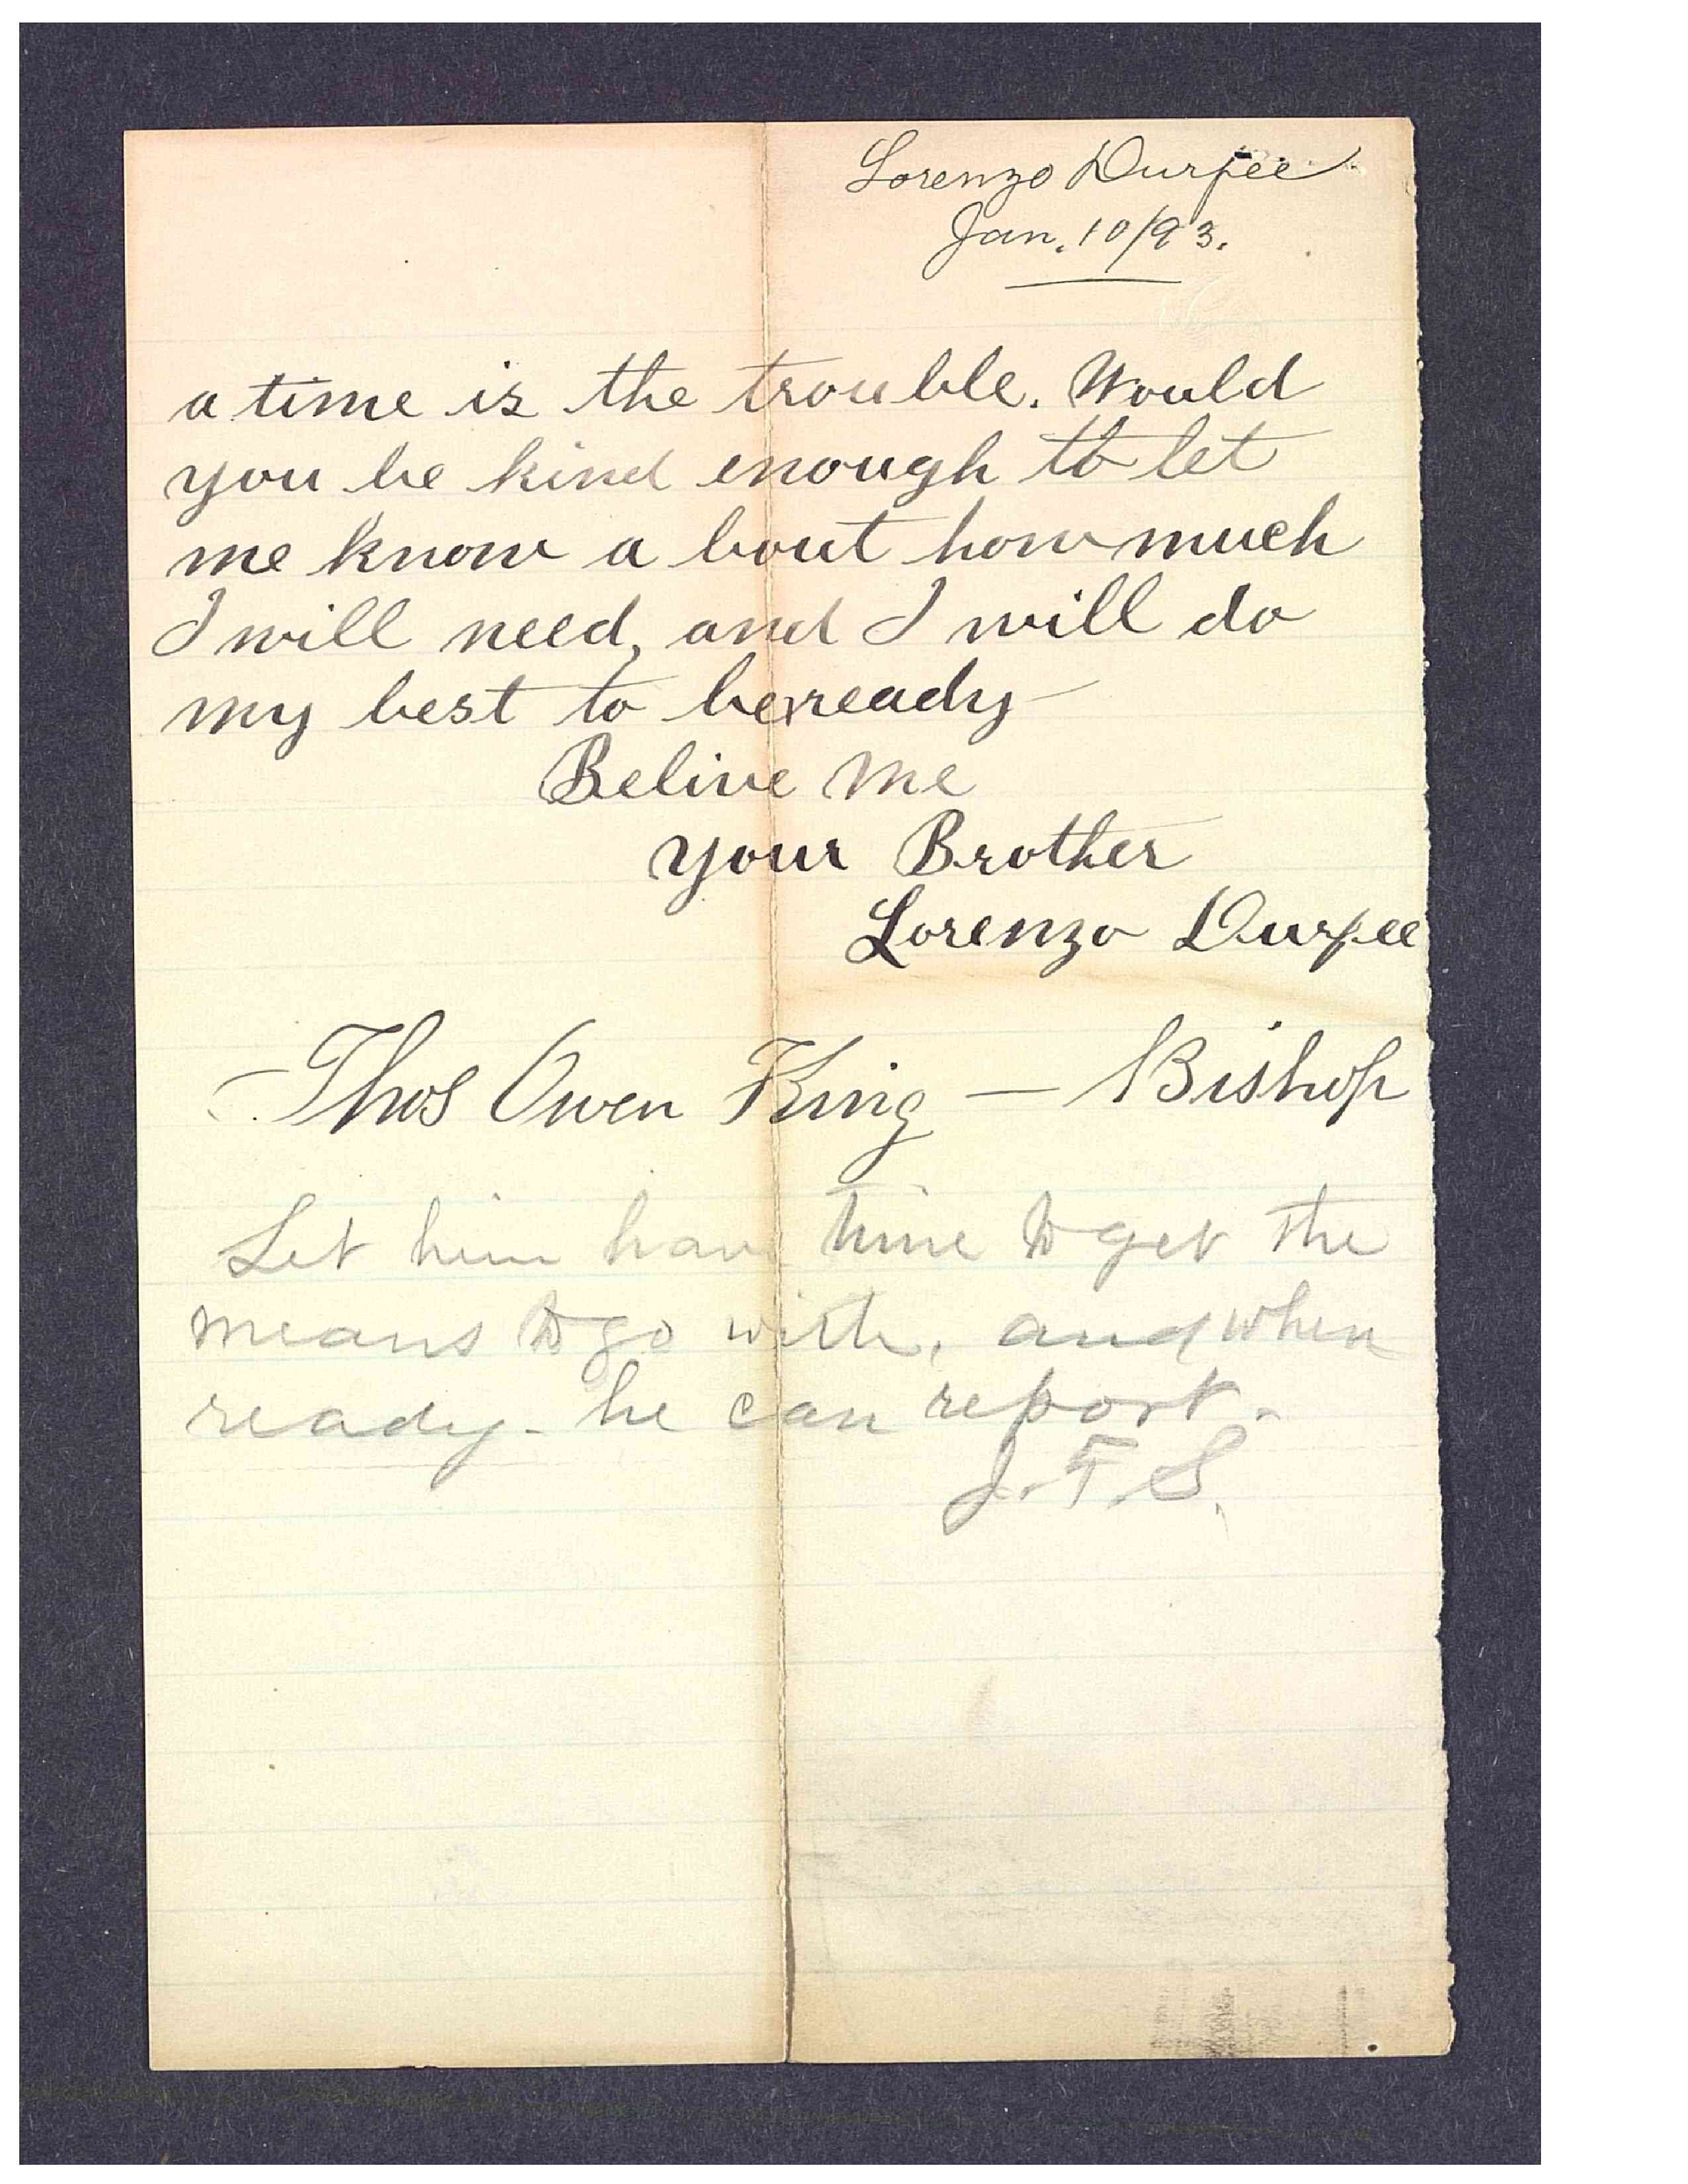 Lorenzo Durfee
Jan. 10/93.
a time is the trouble. Would
you be kind enough to let
me know a bout how much
I will need, and I will do
my best to be ready
Belive me
your Brother
Lorenzo Durfee
Thos Owen King — Bishop
Let him have time to get the
means to go with, and when
ready - he can report.
J.F.S.